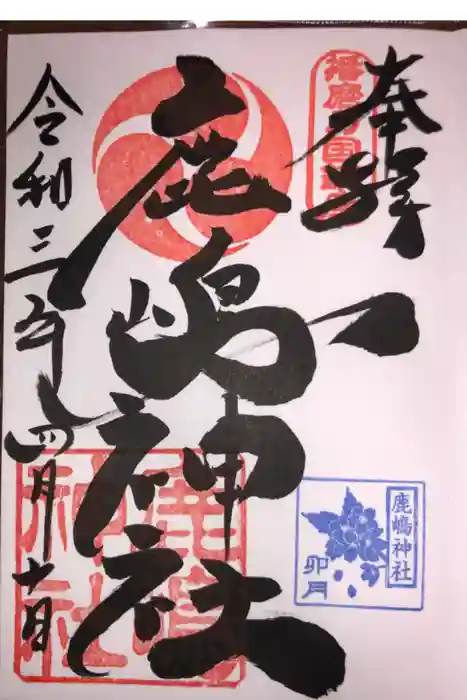 奉拝
鹿嶋神社
令和三年四月十日
鹿嶋神社
卯月
鹿嶋
神社